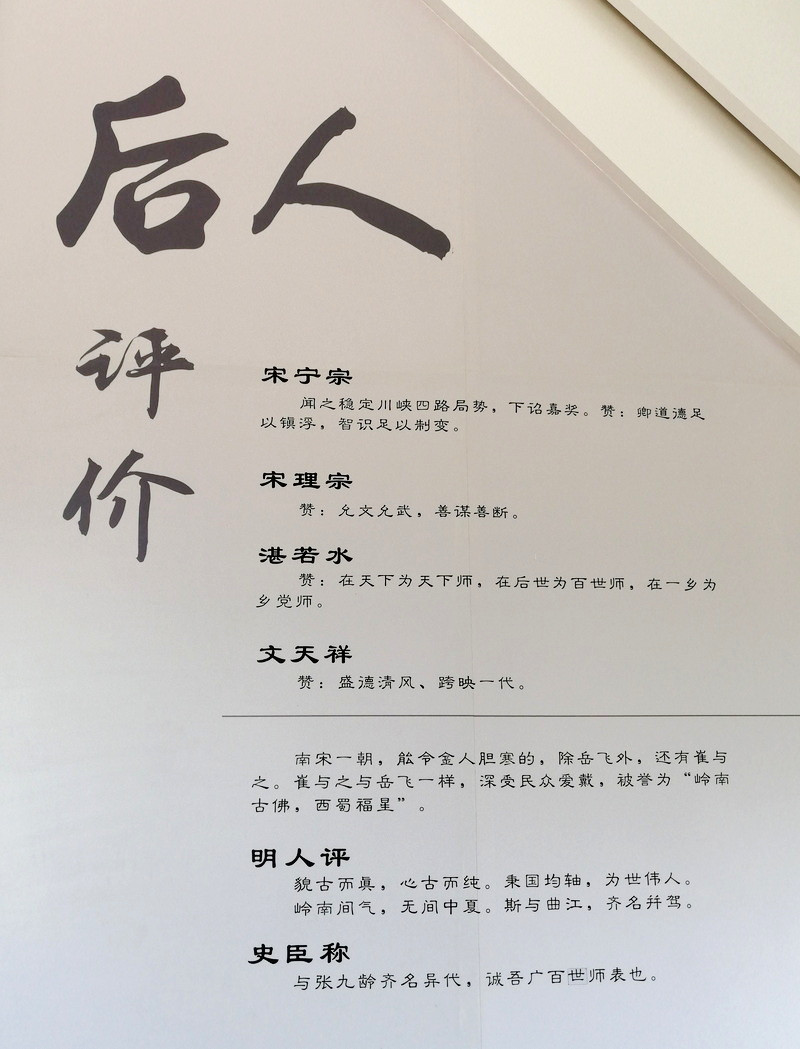 后人
评
价
宋宁宗
闻之稳定川峡四路局势，下诏嘉奖。赞：卿道德足
以镇浮，智识足以制变。
宋理宗
赞：允文允武，善谋善断。
湛若水
赞：在天下为天下师，在后世为百世师，在一乡为
乡党师。
文天祥
赞：盛德清风、跨映一代。
南宋一朝，能令金人胆寒的，除岳飞外，还有崔与
之。崔与之与岳飞一样，深受民众爱戴，被誉为“岭南
古佛，西蜀福星”。
明人评
貌古而真，心古而纯。秉国均轴，为世伟人。
岭南间气，无间中夏。斯与曲江，齐名并驾。
史臣称
与张九龄齐名异代，诚吾广百世师表也。